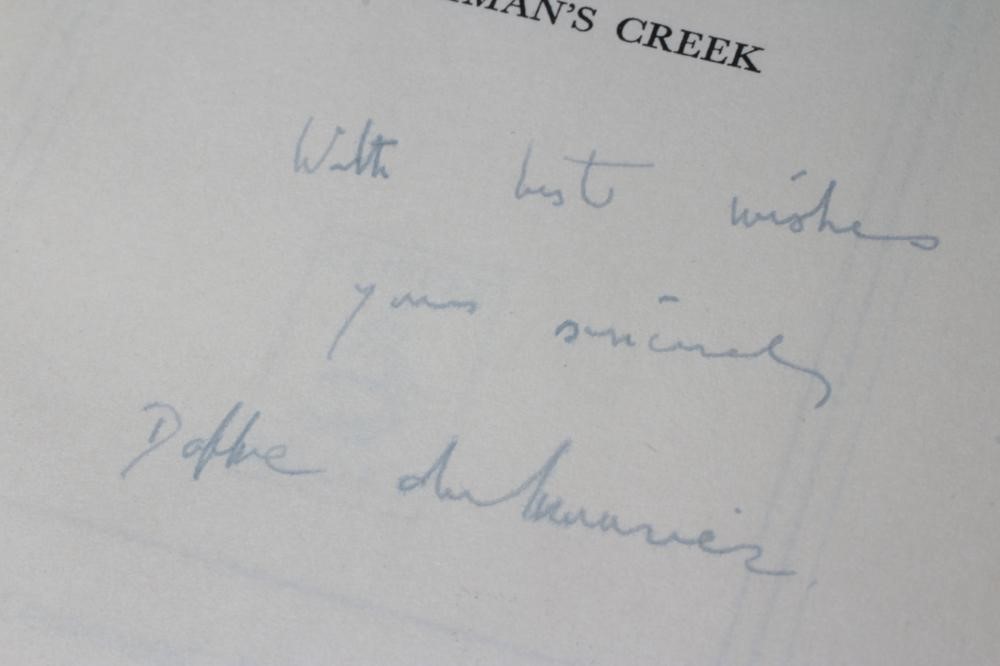 MAN'S CREEK
With best wishes
yours sincerely
Daphne du Maurier.